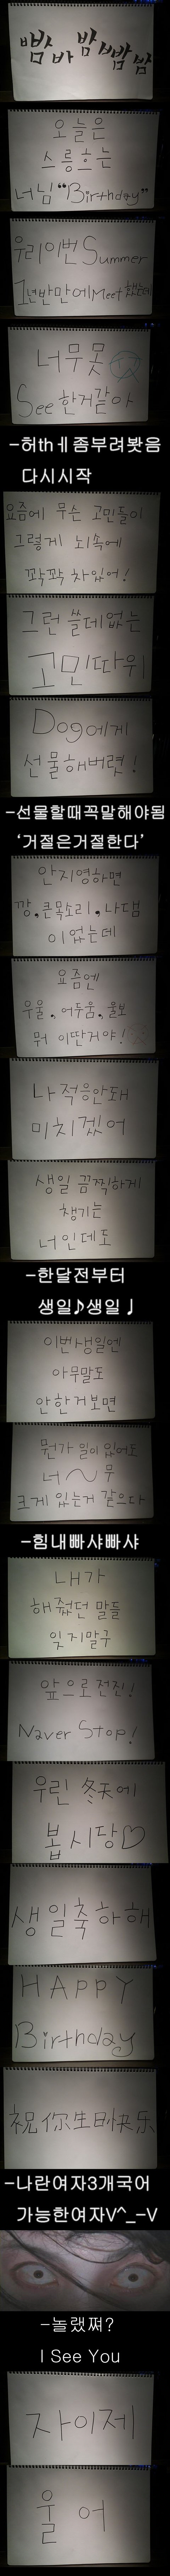 빰바밤빠밤밤
오늘은
스릉흐는
너님“Birthday”
우리이번Summer
1년반만에Meet했는데
너무못
See 한거같아
-허thㅔ좀부려봣음
다시시작
요즘에 무슨 고민들이
그렇게 뇌속에
꽉꽉 차있어!
그런 쓸데없는
고민따위
Dog에게
선물해버렷!
-선물할때꼭말해야됨
‘거절은거절한다’
안지영하면
깡,큰목소리,나댐
이없는데
요즘엔
우울,어두움,울보
뭐 이딴거야!
나적응안돼
미치겠어
생일 끔찍하게
챙기는
너인데도
-한달전부터
생일♪생일♩
이번생일엔
아무말도
안한거보면
뭔가 일이 있어도
너~무
크게 있는거 같으다
-힘내빠샤빠샤
내가
해줬던 말들
잊지말구
앞으로전진!
Naver Stop!
우린 冬天에
봅시당♡
생일축하해
HAPPY
Birthday
祝你生日快乐
-나란여자3개국어
가능한여자V^_-V
-놀랬쪄?
I See You
자이제
울어